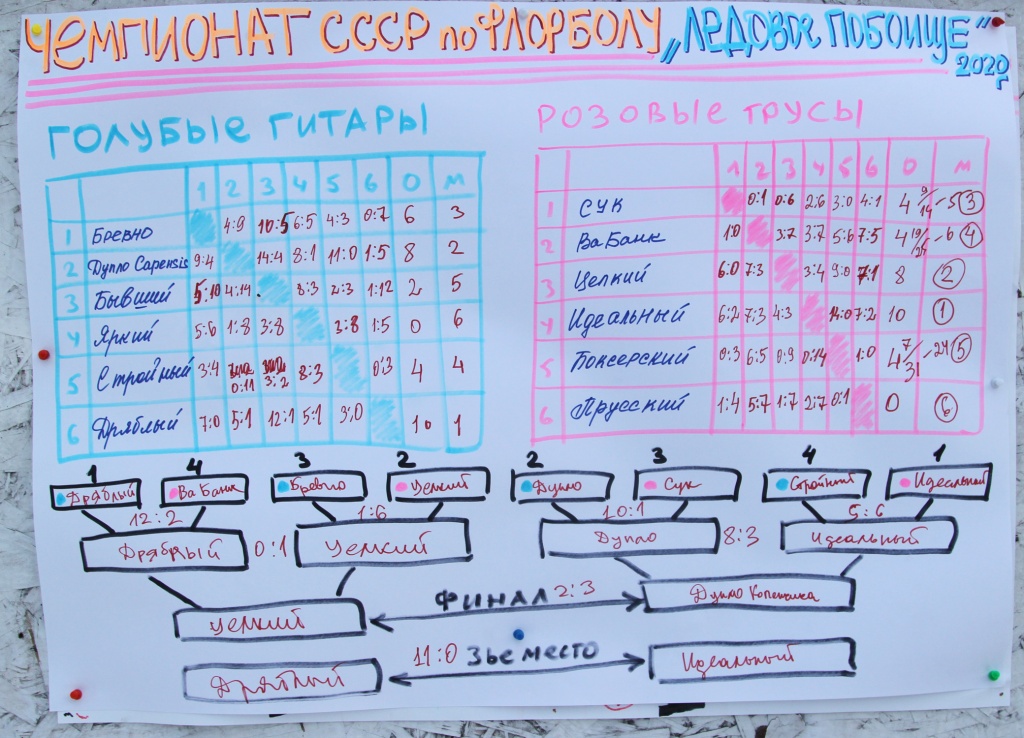 ЧЕМПИОНАТ СССР по ФЛОРБОЛУ „ЛЕДОВОЕ ПОБОИЩЕ"
2020г
ГОЛУБЫЕ ГИТАРЫ
1 2 3 4 5 6 О М
1 Бревно 4:9 10:5 6:5 4:3 0:7 6 3
2 Дупло Capensis 9:4 14:4 8:1 11:0 1:5 8 2
3 Бывший 5:10 4:14 8:3 2:3 1:12 2 5
4 Яркий 5:6 1:8 3:8 2:8 1:5 0 6
5 Стройный 3:4 0:11 3:2 8:3 0:3 4 4
6 Дряблый 7:0 5:1 12:1 5:1 3:0 10 1
РОЗОВЫЕ ТРУСЫ
1 2 3 4 5 6 О М
1 СУК 0:1 0:6 2:6 3:0 4:1 4 9/14 -5 3
2 Ва Банк 1:0 3:7 3:7 5:6 7:5 4 -6 4
3 Цепкий 6:0 7:3 3:4 9:0 7:1 8 2
4 Идеальный 6:2 7:3 4:3 14:0 7:2 10 1
5 Боксерский 0:3 6:5 0:9 0:14 1:0 4 7/31 -24 5
6 Прусский 1:4 5:7 1:7 2:7 0:1 0 6
1 4 3 2 2 3 4 1
Дряблый Ва Банк Бревно Цепкий Дупло Сук Стройный Идеальный
12:2 1:6 10:1 5:6
Дряблый 0:1 Цепкий Дупло 8:3 Идеальный
Цепкий ФИНАЛ 2:3 Дупло
Дряблый 11:0 3ье МЕСТО Идеальный